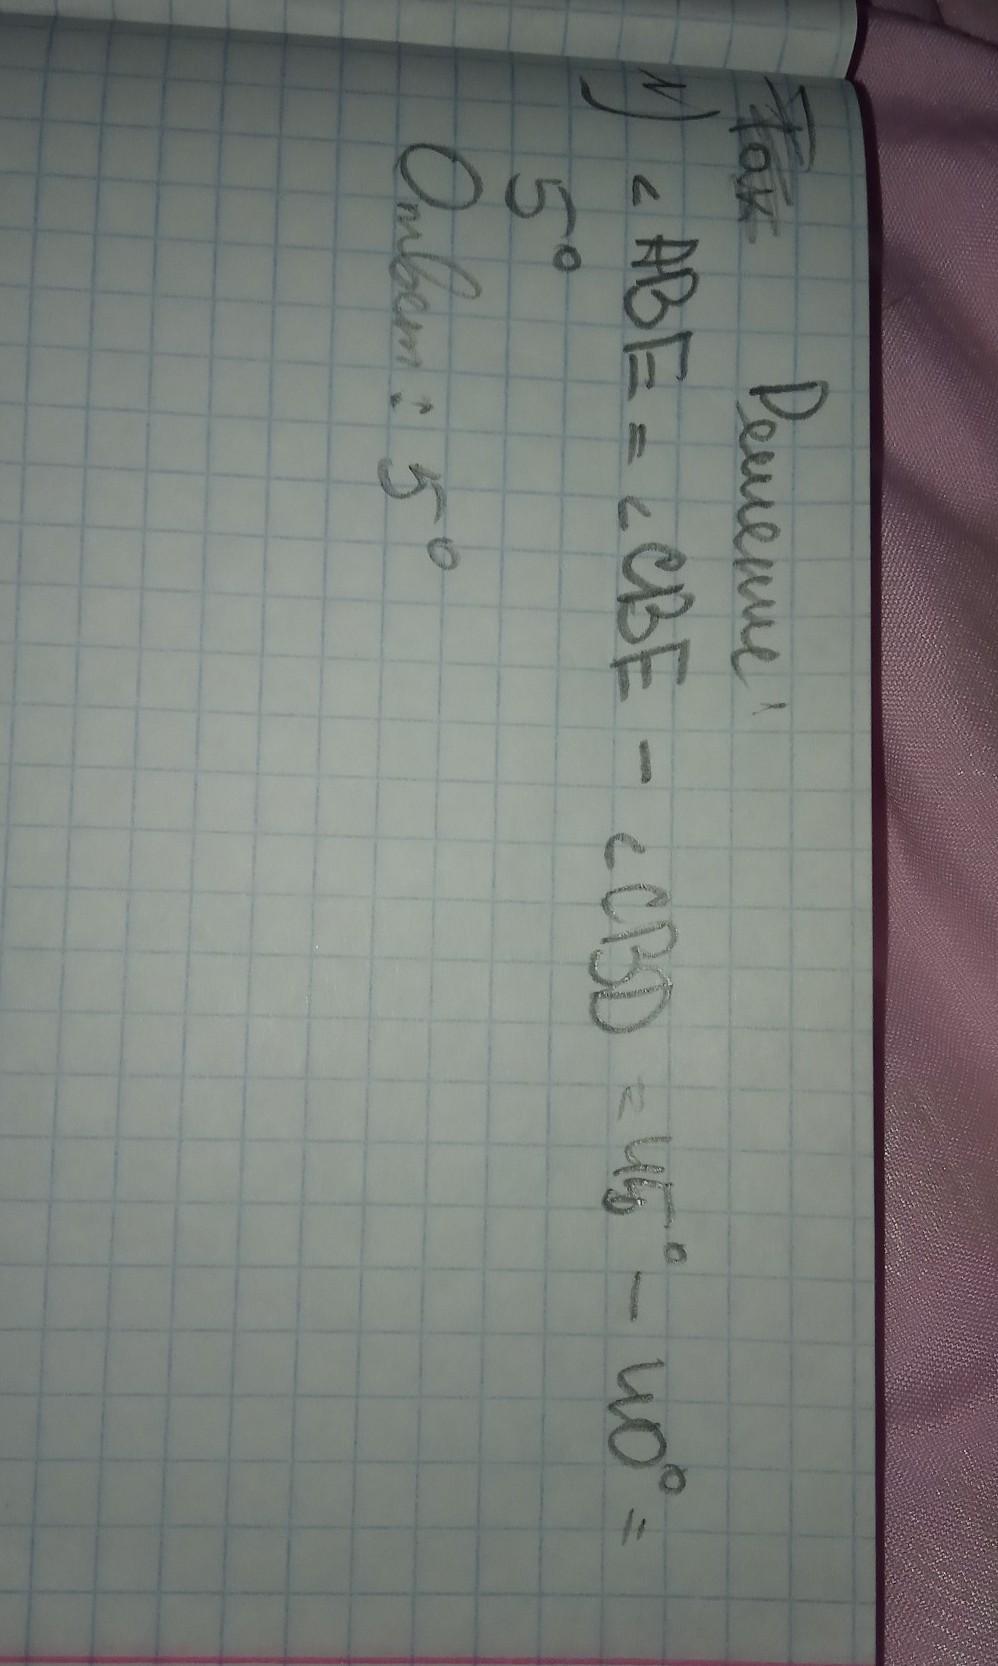 Решение:
1) ∠ABE = ∠CBE - ∠CBD = 45° - 40° =
5°
Ответ: 5°